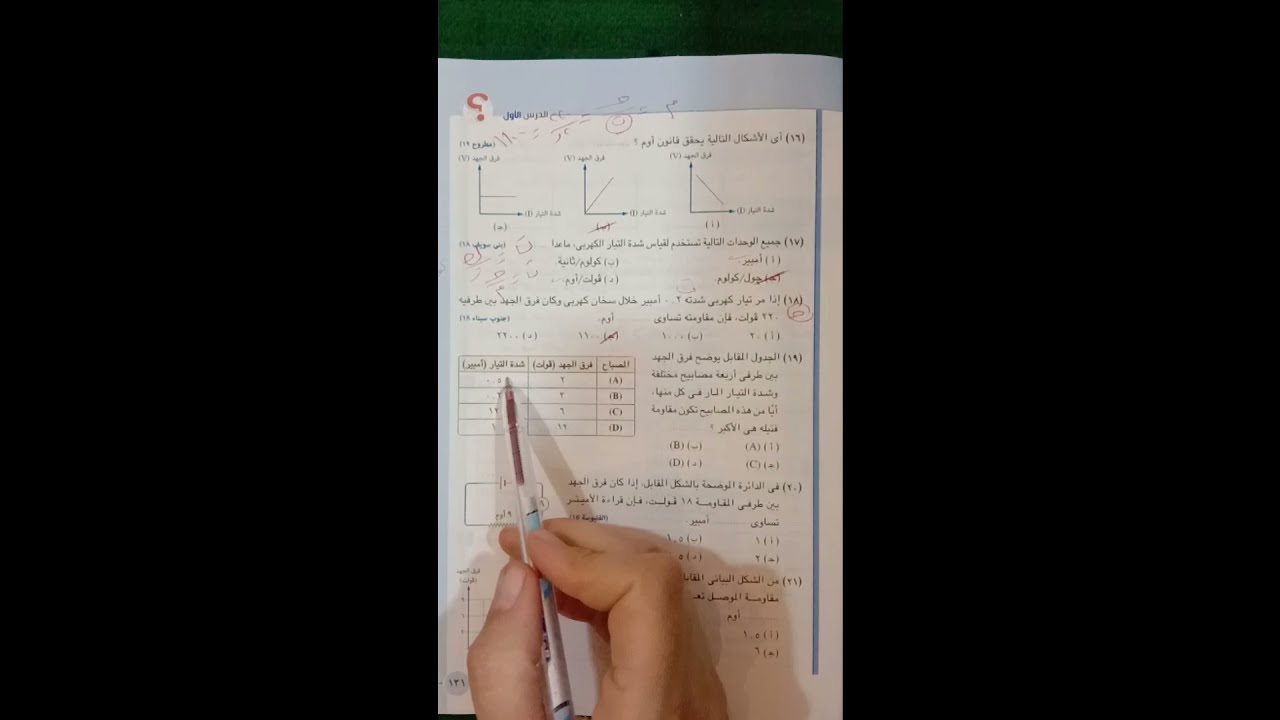 الدرس الأول
(١٦) أى الأشكال التالية يحقق قانون أوم ؟
(مطروح ١٩)
فرق الجهد (V)
فرق الجهد (V)
فرق الجهد (V)
شدة التيار (I)
شدة التيار (I)
شدة التيار (I)
(أ)
(ب)
(جـ)
(١٧) جميع الوحدات التالية تستخدم لقياس شدة التيار الكهربى، ماعدا
(بنى سويف ١٨)
(أ) أمبير. (ب) كولوم/ثانية.
(جـ) چول/كولوم. (د) ڤولت/أوم.
(١٨) إذا مر تيار كهربى شدته ٠,٢ أمبير خلال سخان كهربى وكان فرق الجهد بين طرفيه
٢٢٠ ڤولت، فإن مقاومته تساوى أوم.
(جنوب سيناء ١٨)
(أ) ٢٠ (ب) ١٠٠٠ (جـ) ١١٠٠ (د) ٢٢٠٠
(١٩) الجدول المقابل يوضح فرق الجهد
بين طرفى أربعة مصابيح مختلفة
وشدة التيار المار فى كل منها،
أيًا من هذه المصابيح تكون مقاومة
فتيله هى الأكبر ؟
(أ) (A) (ب) (B)
(جـ) (C) (د) (D)
المصباح فرق الجهد (ڤولت) شدة التيار (أمبير)
(A) ٢ ٠,٥
(B) ٣
(C) ٦ ١٢
(D) ١٢
(٢٠) فى الدائرة الموضحة بالشكل المقابل، إذا كان فرق الجهد
بين طرفى المقاومة ١٨ ڤولت، فإن قراءة الأميتر
تساوى أمبير
(أ) ١ (ب) ١,٥
(جـ) ٢
٩ أوم
(٢١) من الشكل البيانى
مقاومة الموصل
أوم
(أ) ١,٥
(جـ) ٦
فرق الجهد
(ڤولت)
١٣١